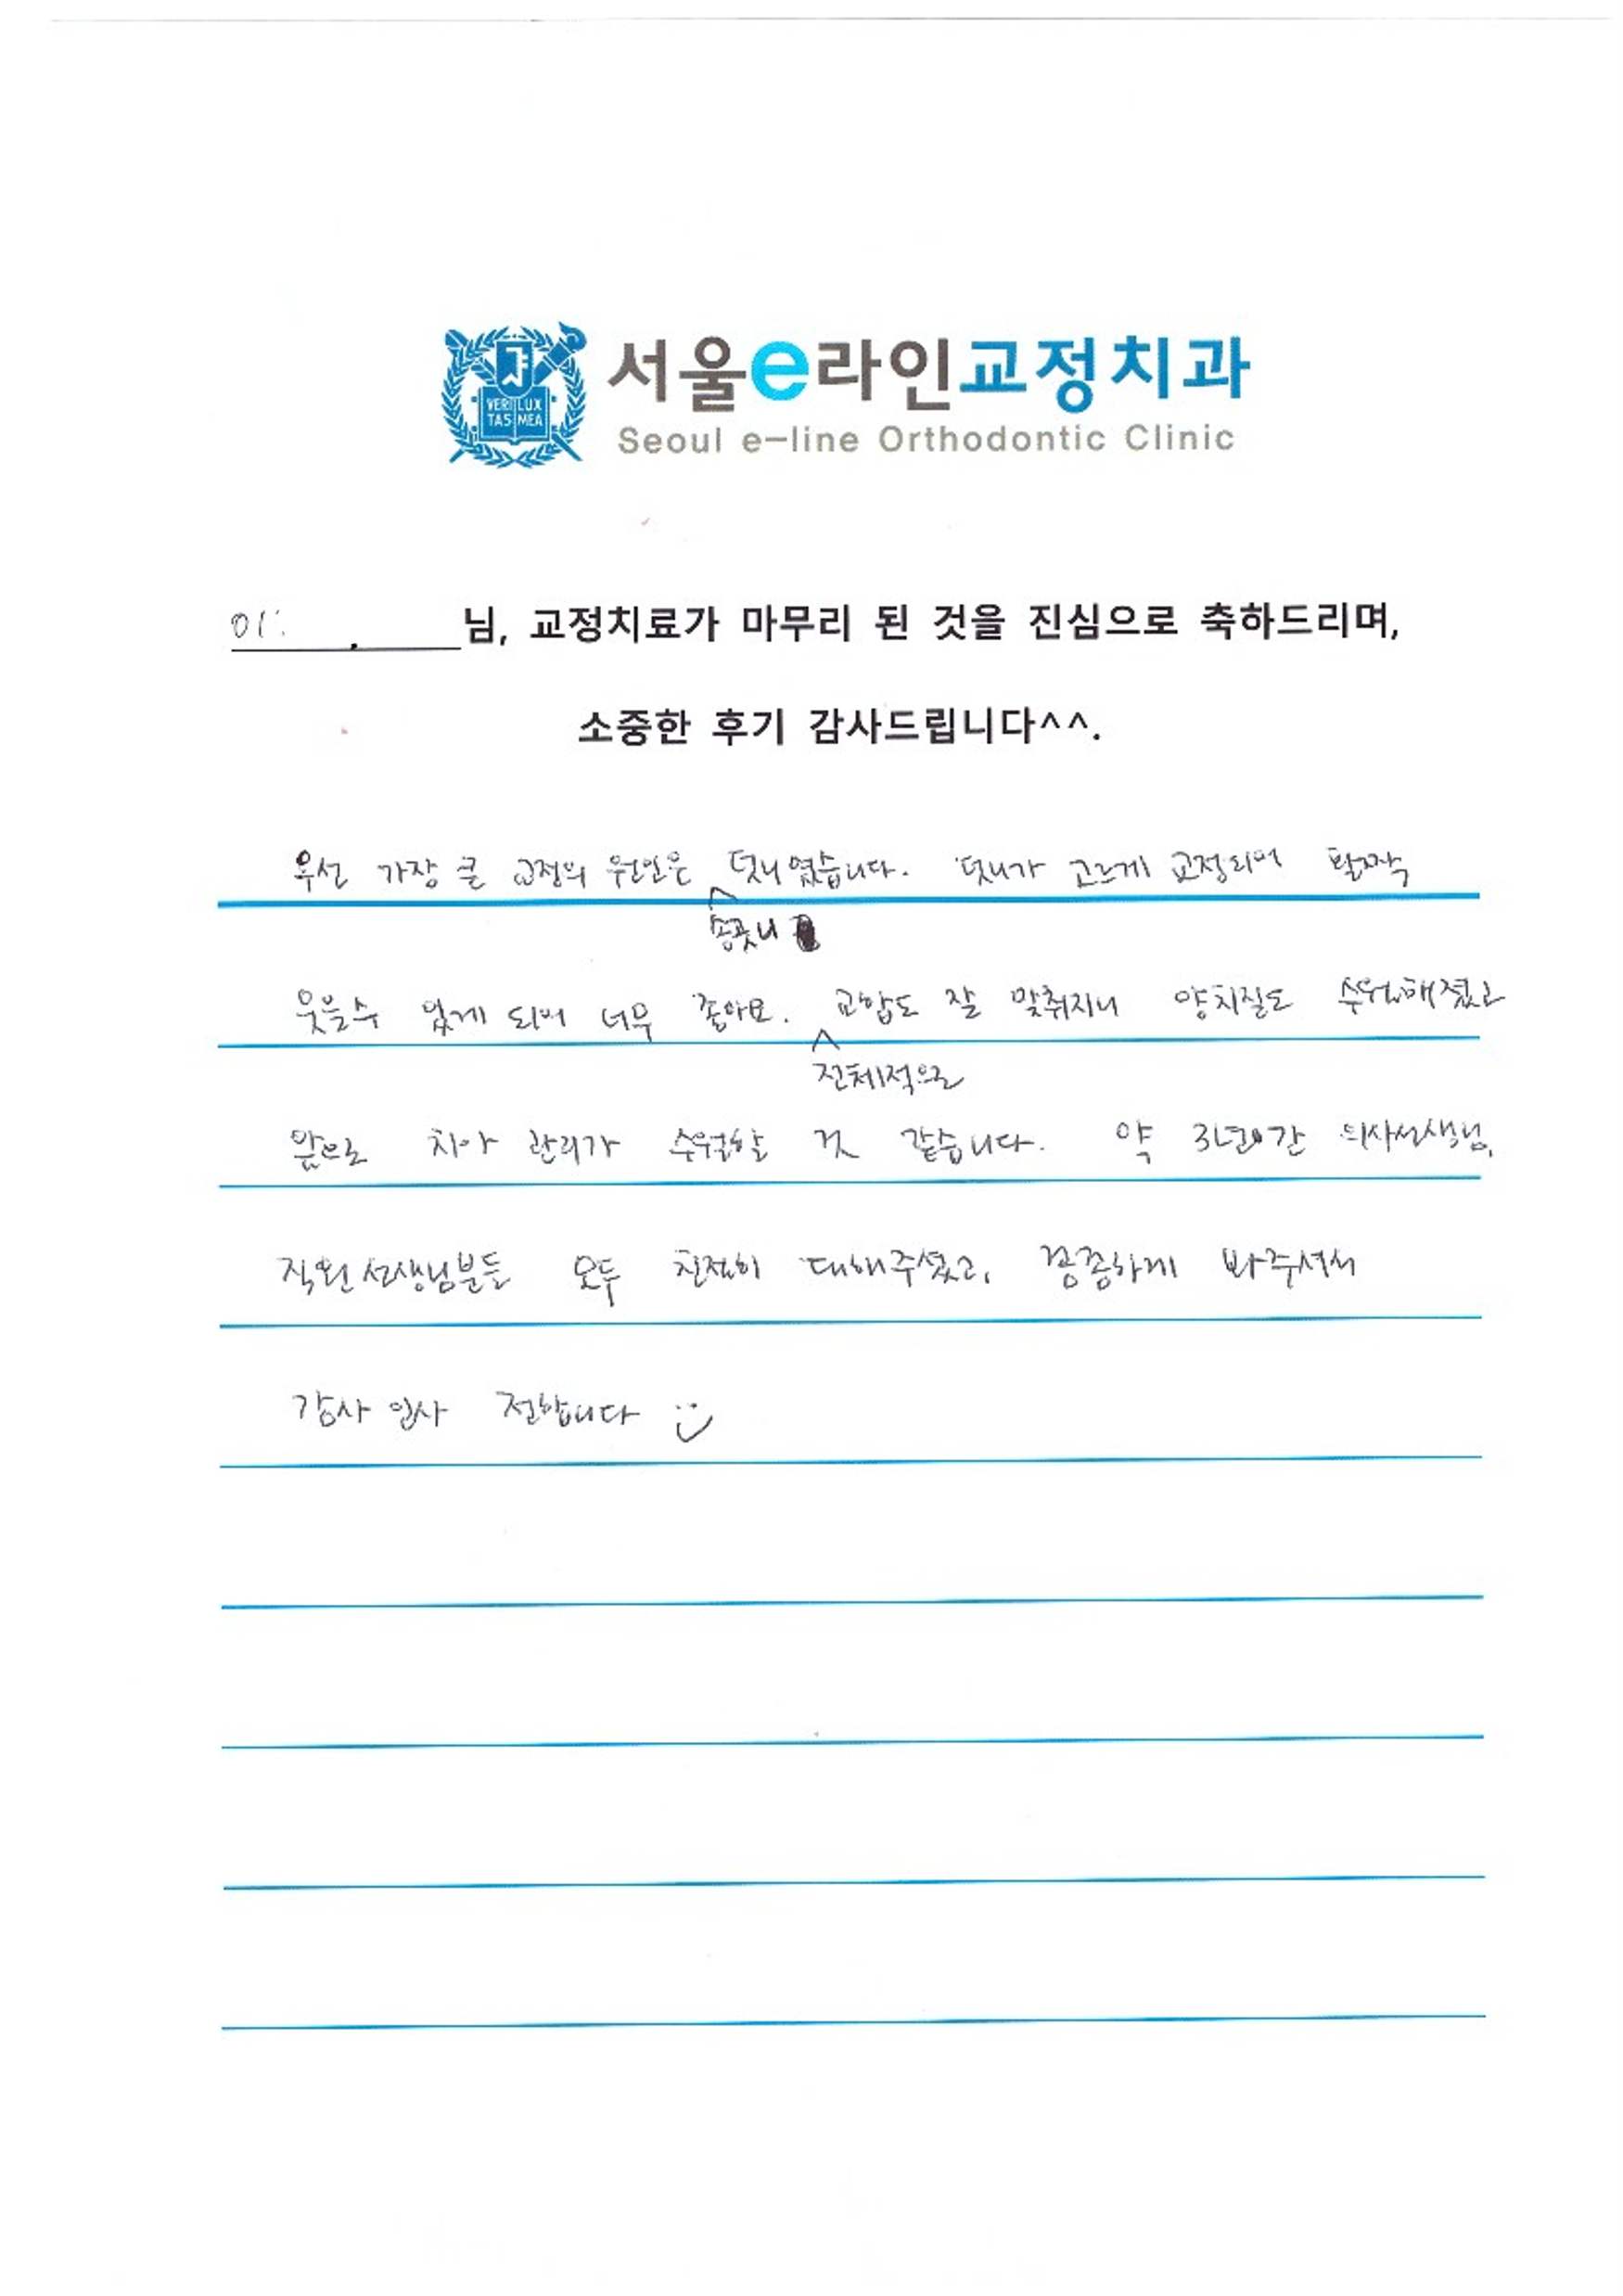 VERI LUX
TAS MEA
서울e라인교정치과
Seoul e-line Orthodontic Clinic
이 님, 교정치료가 마무리 된 것을 진심으로 축하드리며,
소중한 후기 감사드립니다^^.
우선 가장 큰 교정의 원인은 덧니였습니다. 덧니가 고르게 교정되며 활짝
송곳니
웃을수 있게 되어 너무 좋아요. 교합도 잘 맞춰지니 양치질도 수월해졌고
전체적으로
앞으로 치아 관리가 수월할 것 같습니다. 약 3년간 의사선생님,
직원선생님분들 모두 친절히 대해주셨고, 꼼꼼하게 봐주셔서
감사 인사 전합니다 :)